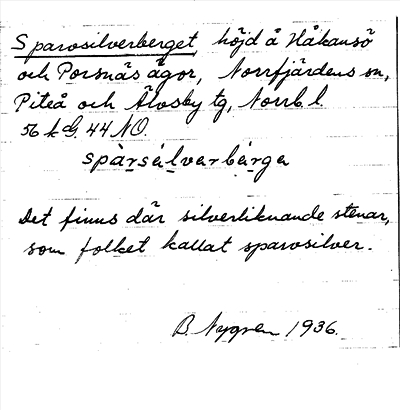 Sparosilverberget, höjd å Håkansö
och Porsnäs ägor, Norrfjärdens sn,
Piteå och Älvsby tg, Norrb. l.
56 k d. 44 NO.
spàrsə́lvarbärga
Det finns där silverliknande stenar,
som folket kallat sparosilver.
B. Nygren 1936.